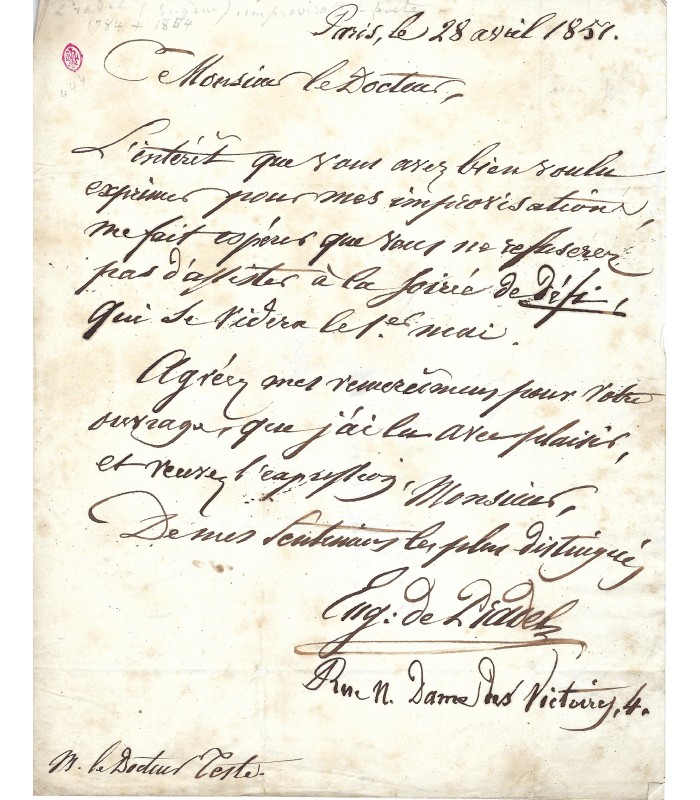 Pradel (Eugène) improvisateur poète
1784 + 1854
444
Paris, le 28 avril 1851.
Monsieur le Docteur,
L'intérêt que vous avez bien voulu
exprimer pour mes improvisations,
me fait espérer que vous ne refuserez
pas d'assister à la soirée de Défi,
qui se videra le 1.er mai.
Agréez mes remercîmens pour votre
ouvrage, que j'ai lu avec plaisir,
et recevez l'expression, Monsieur,
De mes sentimens les plus distingués
Eug: de Pradel
Rue N. Dame des Victoires, 4.
M. le Docteur Teste.